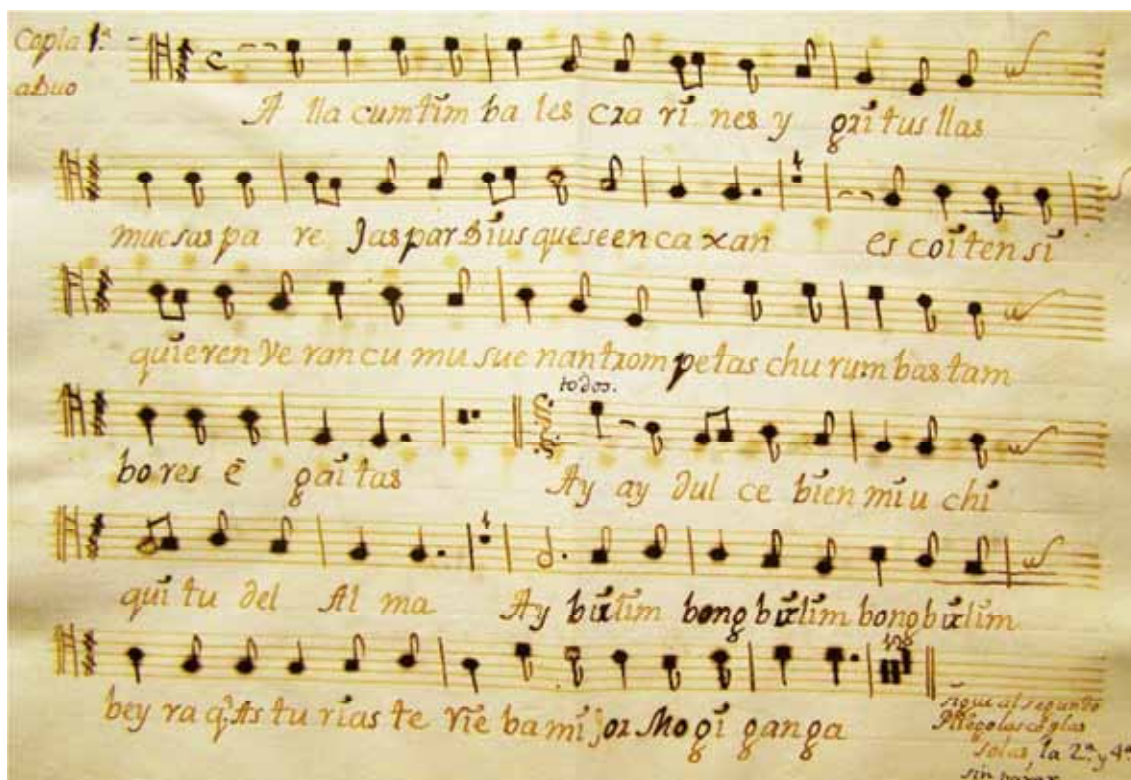 Copla 1.ª
aduo
A lla cum tim ba les cra ri nes y gri tus llas
mue sas pa re jas par Dius que se en ca xan es coi ten si
quie ren ve ran cu mu sue nan trom pe tas chu rum bas tam
todos.
bo res e gai tas Ay ay dul ce bien miu chi
qui tu del Al ma Ay bir lim bong bir lim bong bir lim
bey ra q.e As tu rias te rie ba mi jor Mo gi ganga
sigue al segundo
solas, la 2.ª y 4ª
sin parar